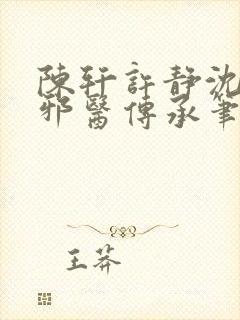 陳軒許靜沈
邪醫傳承筆
王莽